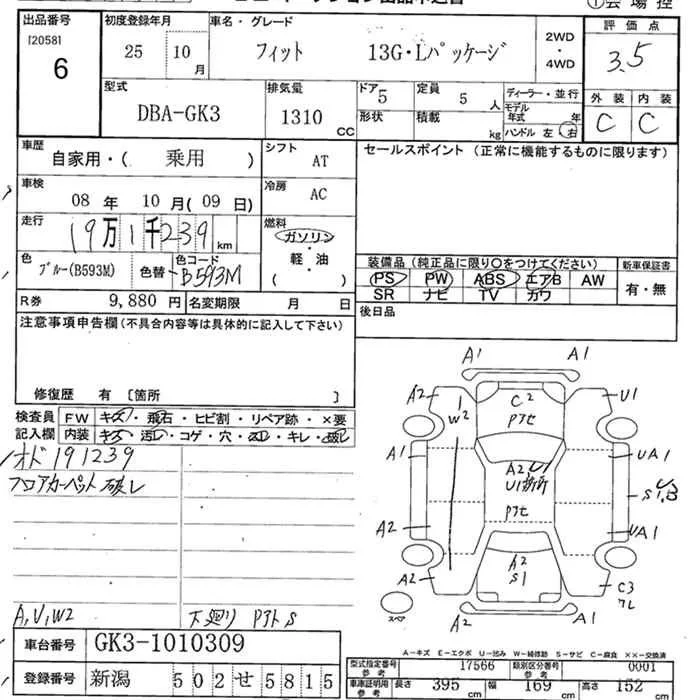 ①会場控
出品番号
[2058]
6
初度登録年月
25 10月
車名・グレード
フィット 13G・Lパッケージ
2WD
・
4WD
評価点
3.5
外装 内装
C C
型式
DBA-GK3
排気量
1310 CC
ドア 5
形状
定員 5 人
積載 kg
ディーラー・並行
モデル年式 年
ハンドル 左 右
車歴
自家用・( 乗用 )
シフト AT
車検
08 年 10 月( 09 日)
冷房 AC
走行
19万1千239 km
燃料
ガソリン
・
軽・油
・
( )
色
ブルー(B593M)
色替
色コード
B593M
R券 9,880 円
名変期限 月 日
セールスポイント (正常に機能するものに限ります)
装備品(純正品に限り○をつけてください)
PS PW ABS エアB AW
SR ナビ TV カワ
新車保証書
有・無
後日品
注意事項申告欄(不具合内容等は具体的に記入して下さい)
修復歴 有 [箇所 ]
検査員記入欄
FW キズ・飛石・ヒビ割・リペア跡・×要
内装 キズ・汚レ・コゲ・穴・スレ・キレ・破レ
オド 191239
フロアカーペット 破レ
A,U,W2
下廻り アト S
A1 A1
A2 U1
C2
アセ
W2
A1 UA1
A2 U1
U1
アセ
S1,B
A2 UA1
A2
S1
A2 C3
A2 A1
スペア
A-キズ E-エクボ U-凹み W-補修跡 S-サビ C-腐食 ××-交換済
車台番号 GK3-1010309
登録番号 新潟 502せ5815
型式指定番号 参考 17566
類別区分番号 参考 0001
車庫証明用 参考 長さ 395 cm 幅 169 cm 高さ 152 cm